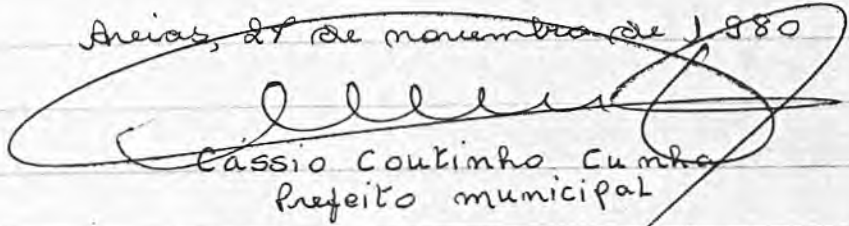 Areias, 27 de novembro de 1980
Cássio Coutinho Cunha
Prefeito municipal